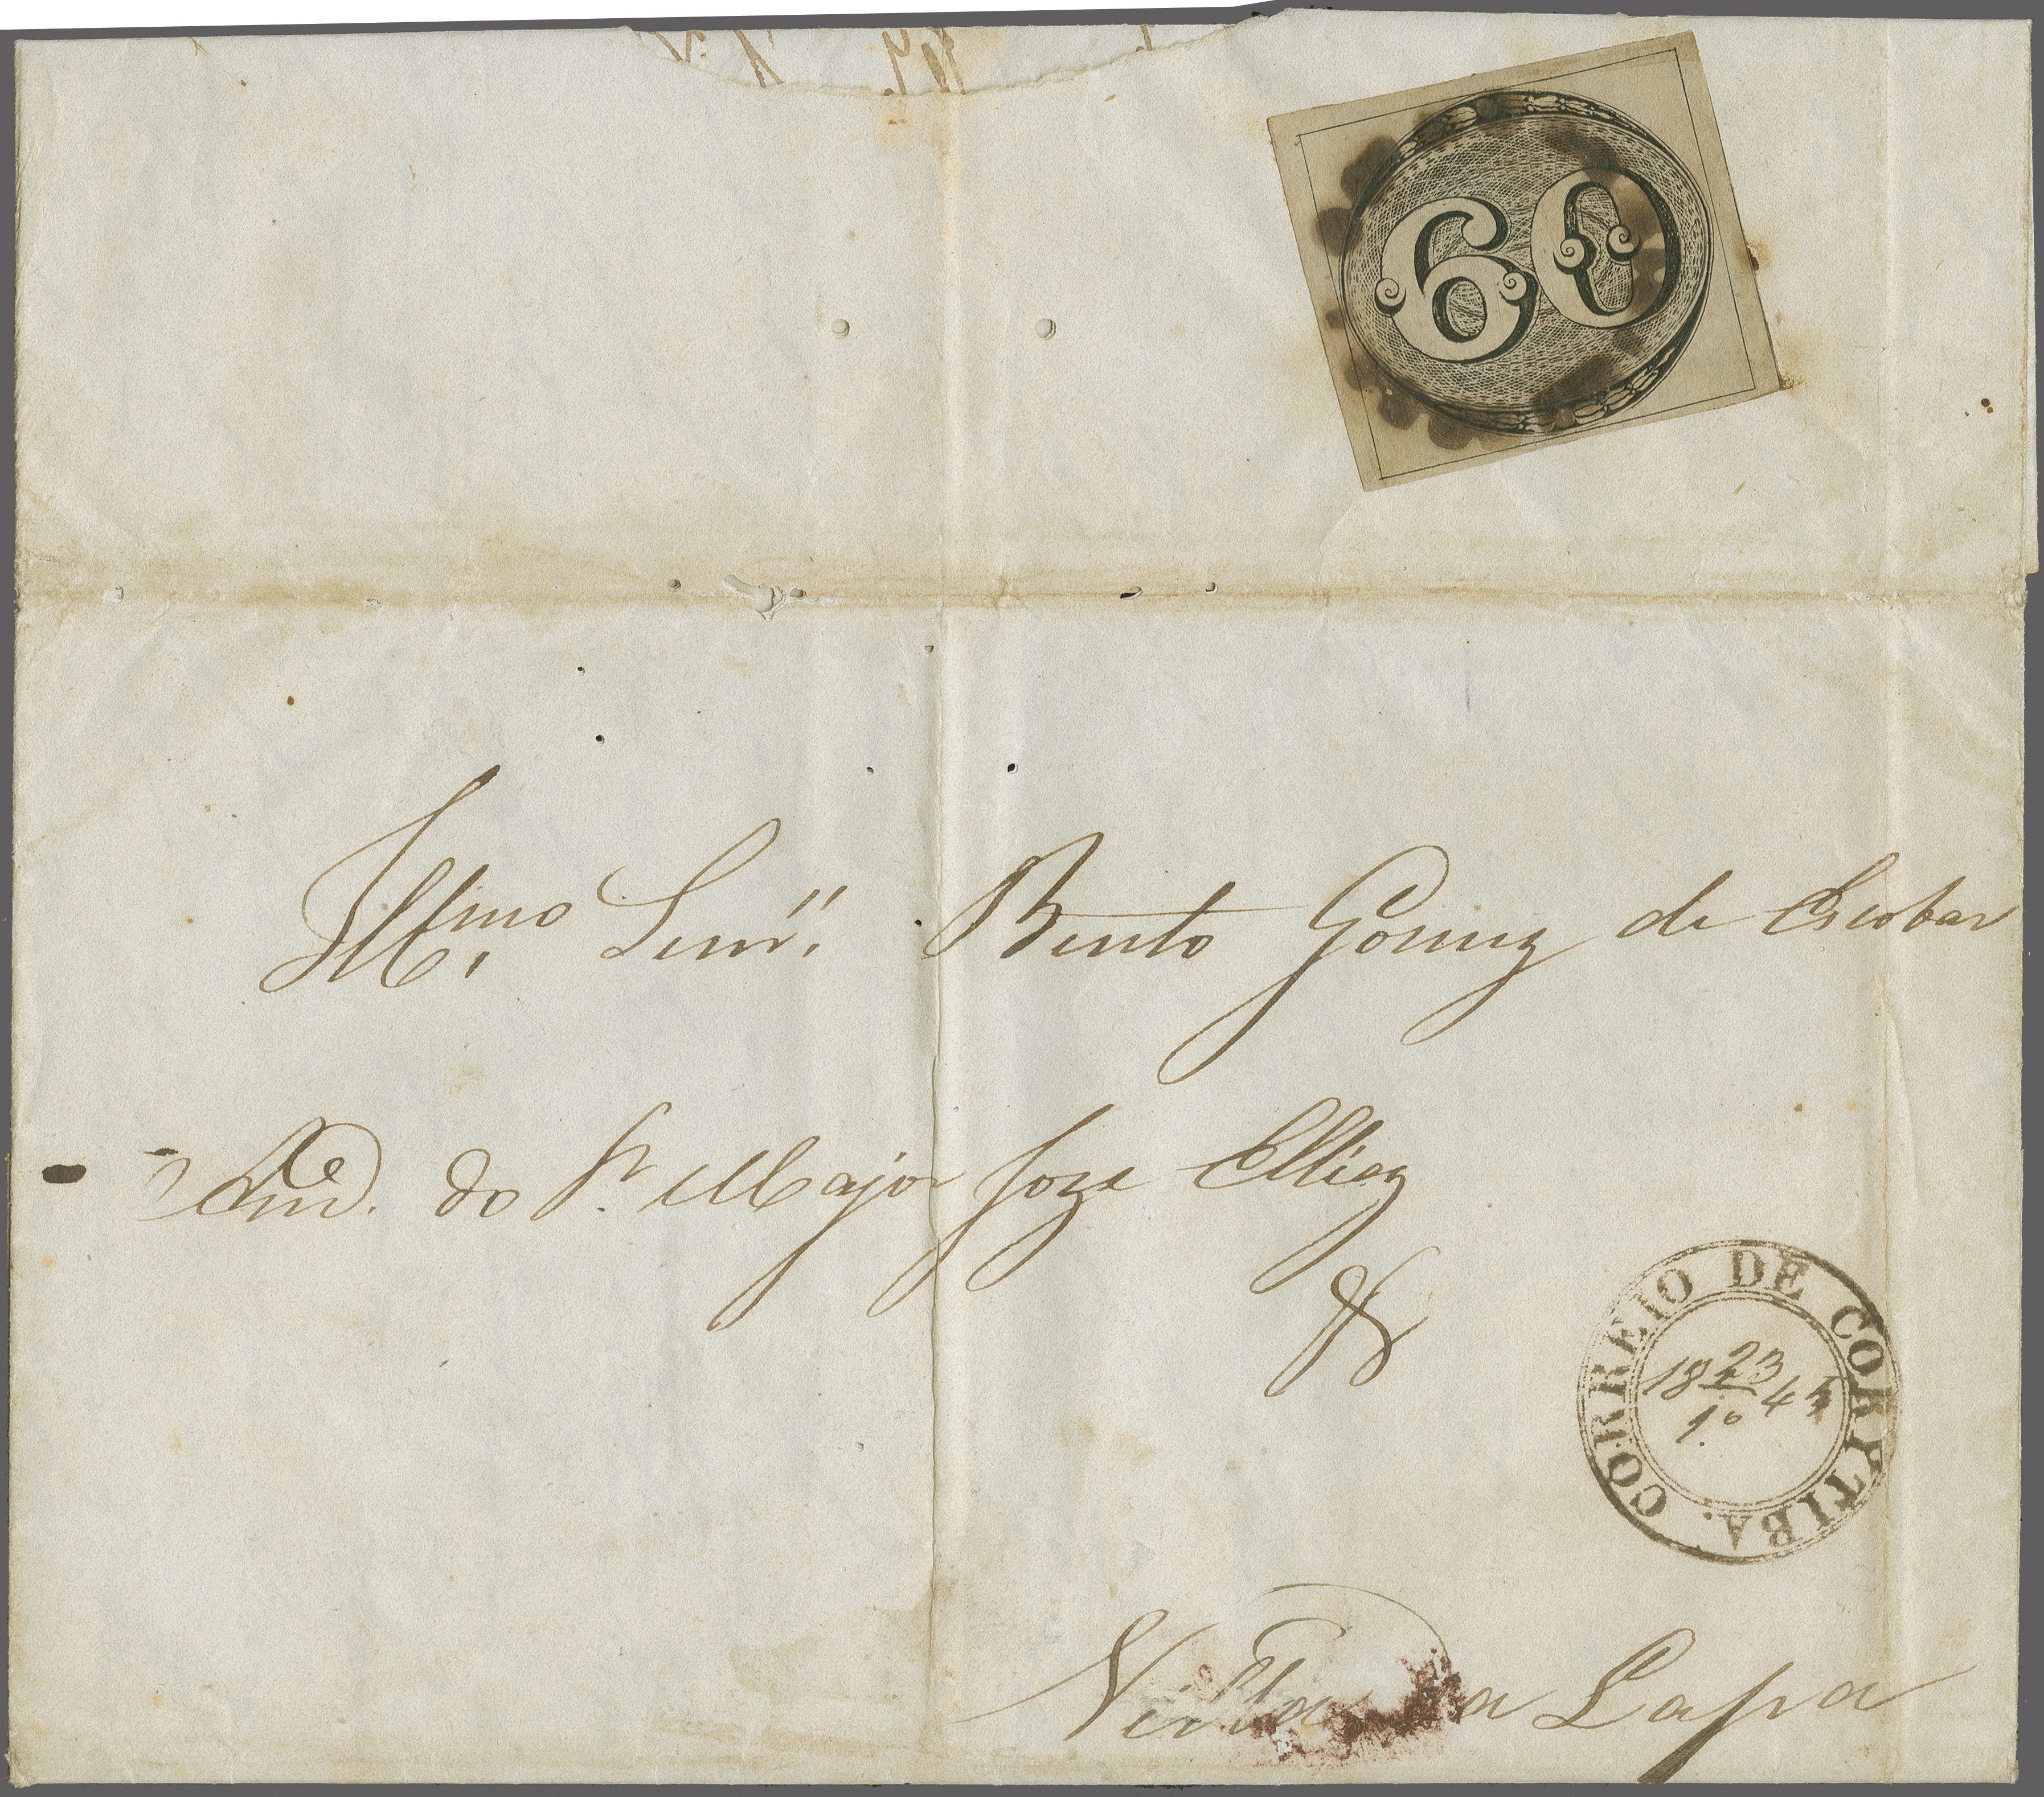 60
Illmo. Senr. Bento Gomez de Escobar
do Sr. Major Joze Elliaz
CORREIO DE CORITIBA.
18 23 4
1º
Villa da Lapa